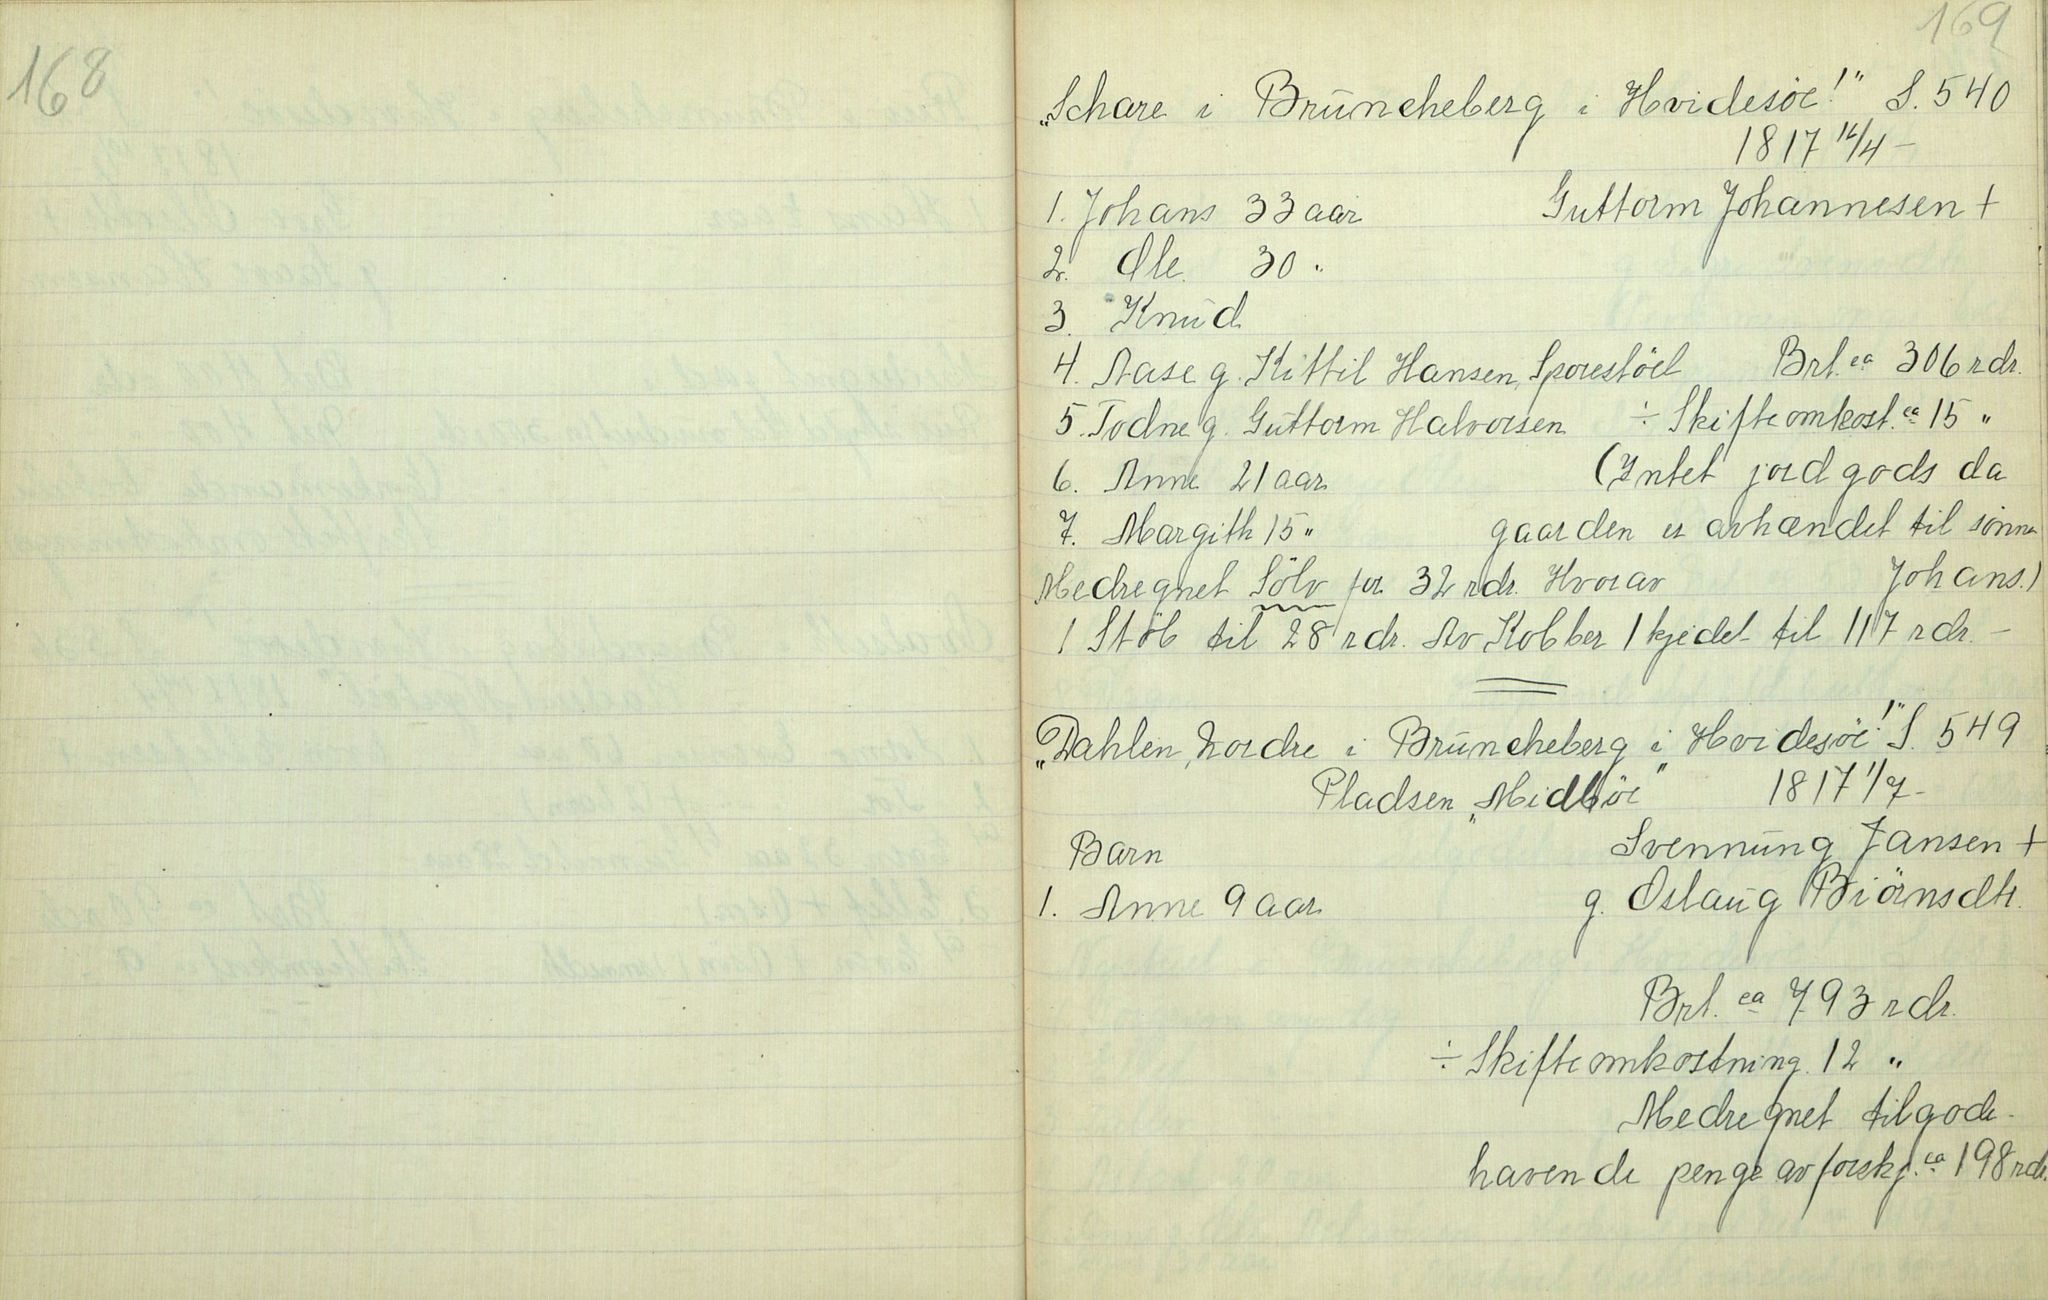 168
169
„Schare i Brūncheberg i Hvidesöe!" S. 540
1817 16/4 –
1. Johans 33 aar Guttorm Johannesen +
2. Ole 30 "
3. Knūd
4. Aase g. Kittil Hansen, Sporestöel Brt. ca 306 rdr.
5. Todne g. Gūttorm Halvorsen ÷ Skifteomkost. ca 15 "
6. Anne 21 aar (Intet jordgods da
7. Margith 15 " gaarden er avhændet til sönne
Medregnet Sölv for 32 rdr. Hvorav Johans.)
1 Stöb til 28 rdr. Av Kobber 1 kjedel til 117 rdr. –
„Dahlen, Nordre i Brūncheberg i Hvidesöe!" S. 549
Pladsen „Midböe" 1817 1/7 –
Barn Svennūng Jansen +
1. Anne 9 aar g. Oslaūg Biörnsdtr.
Brt. ca 793 rdr.
÷ Skifteomkostning. 12 "
Medregnet tilgode-
havende penge av forskj. ca 198 rdr.